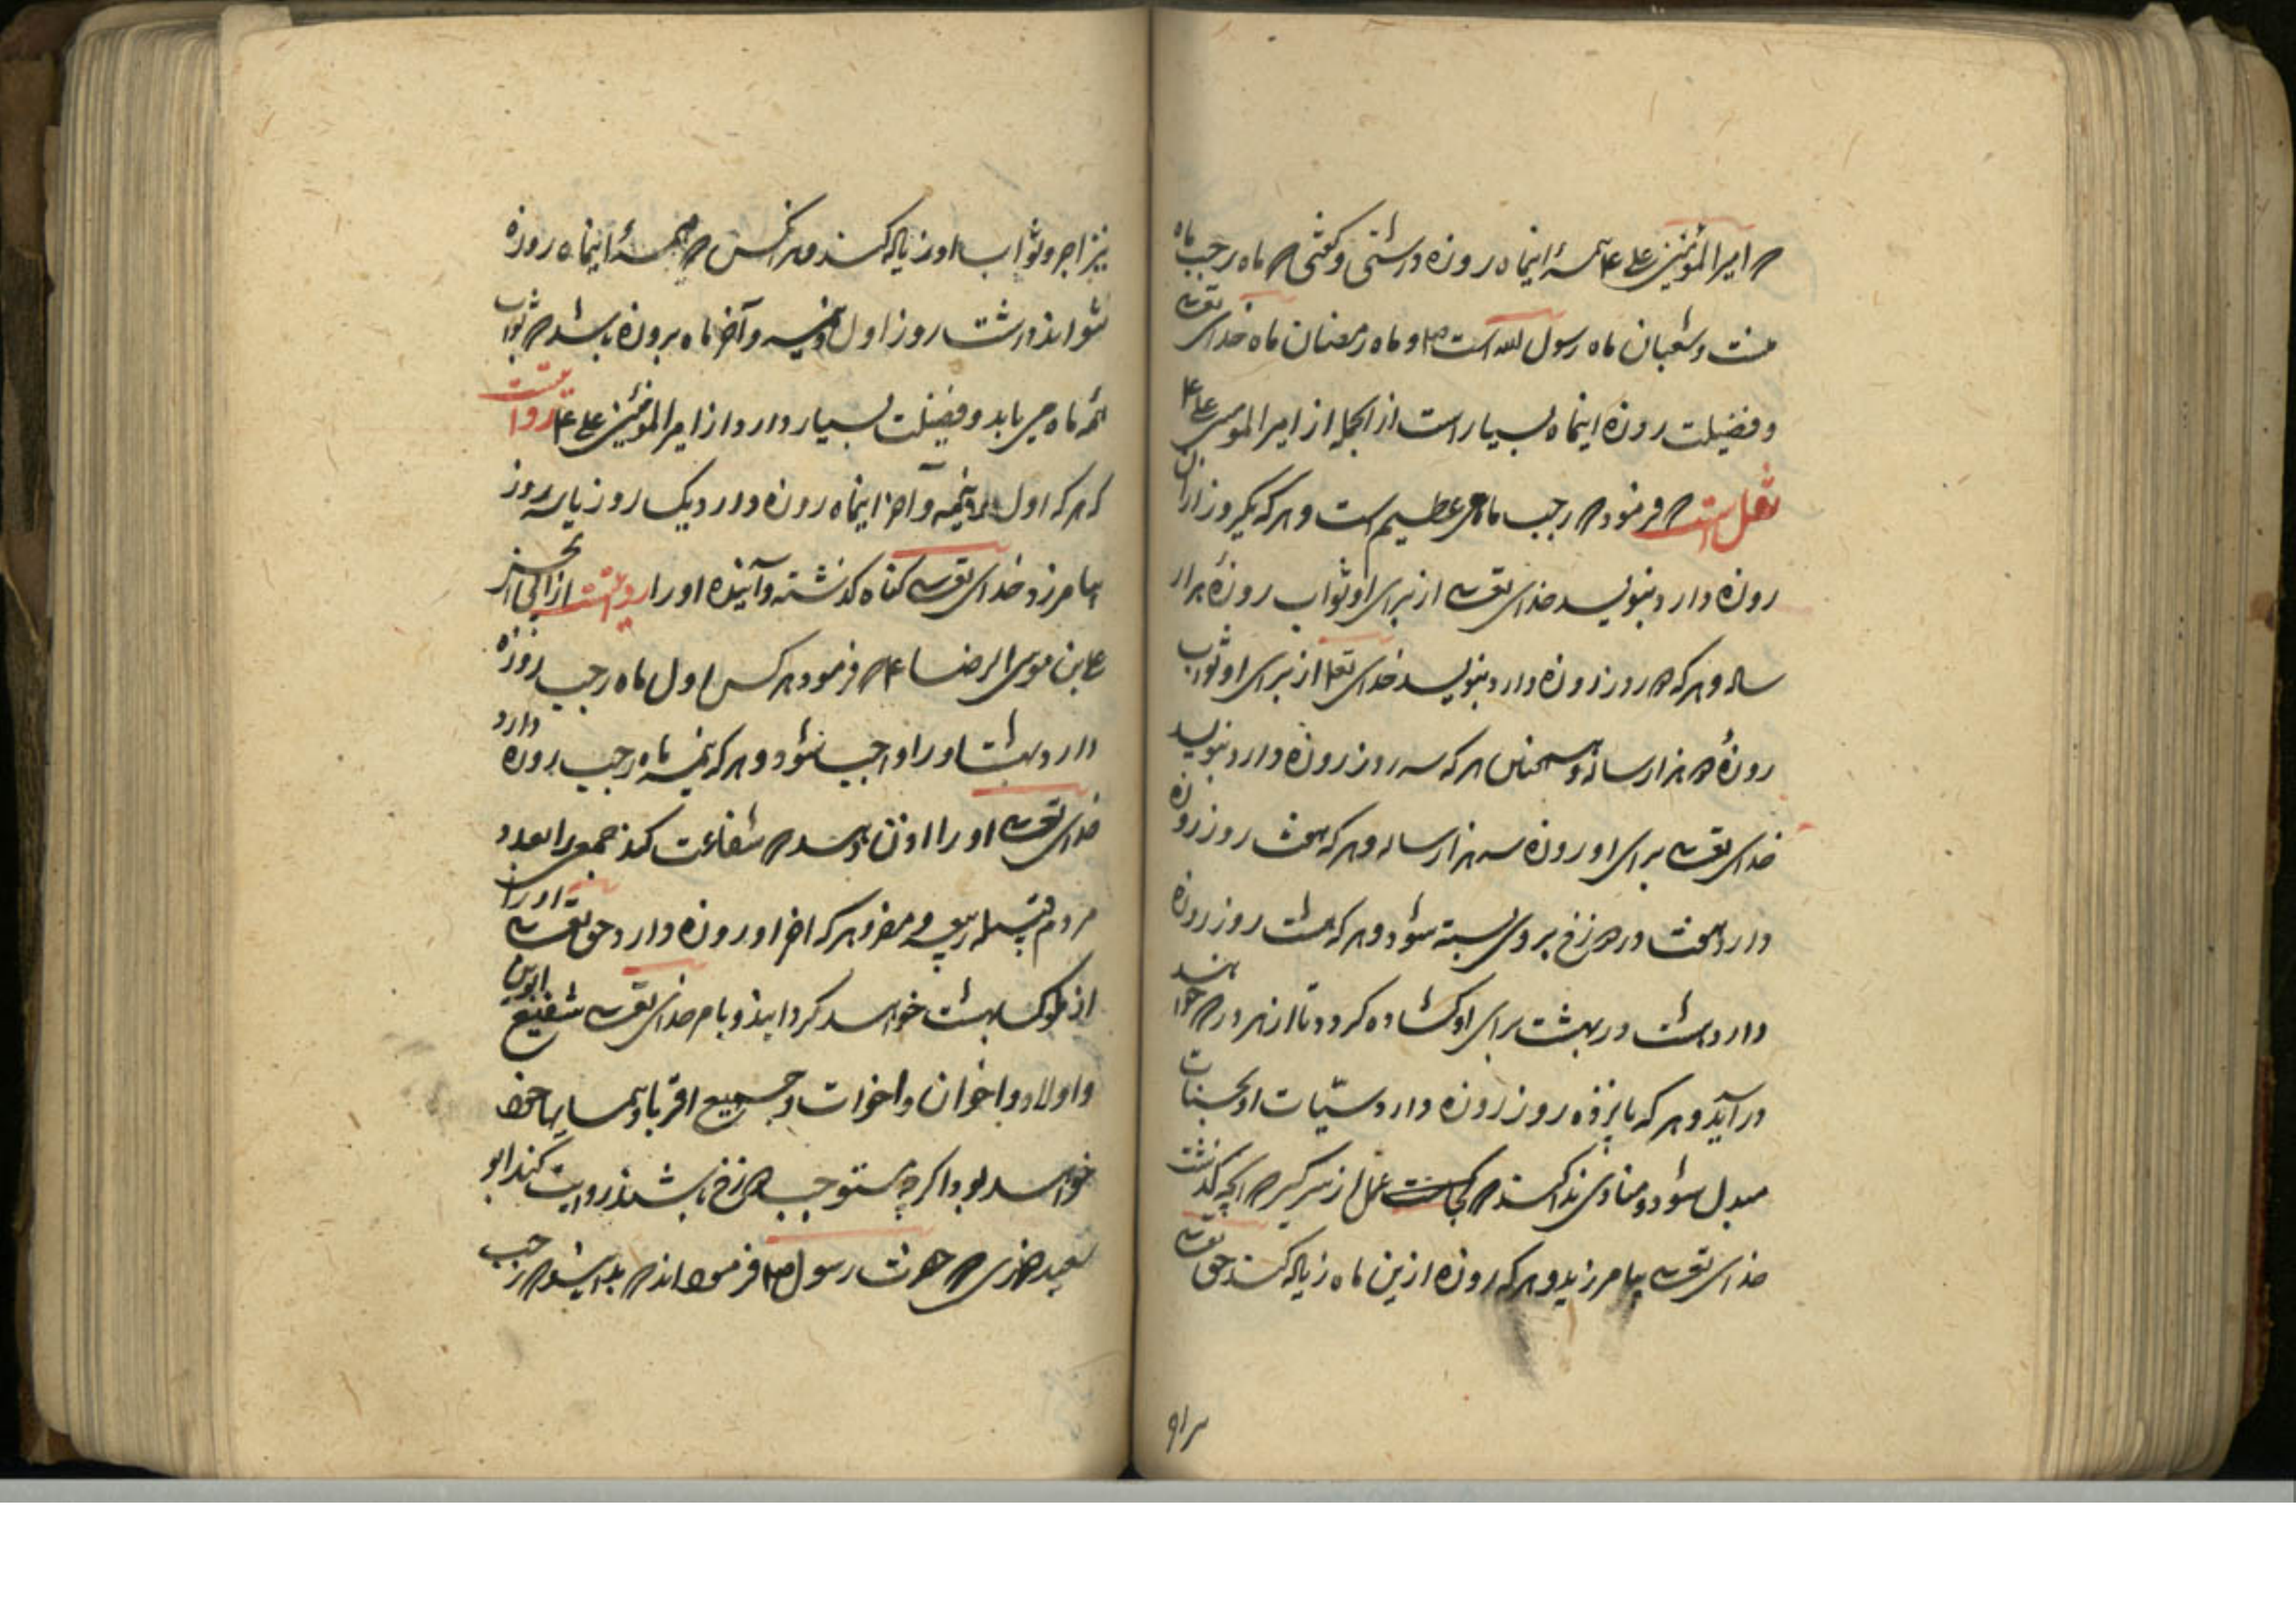 که امیر المؤمنین علی ع همهٔ اینماه روزه داشتی و گفتی که ماه رجب ماه
منست و شعبان ماه رسول الله است ص و ماه رمضان ماه خدای تعالی
و فضیلت روزه اینماه بسیار است از انجمله از امیر المومنین علی ع
نقل است که فرمود که رجب ماه عظیم است و هر که یکروز از ان
روزه دارد بنویسد خدای تعالی از برای او ثواب روزهٔ هزار
ساله و هر که دو روز روزه دارد بنویسد خدای تعالی از برای او ثواب
روزهٔ دو هزار ساله و همچنین هر که سه روز روزه دارد بنویسد
خدای تعالی برای او روزه سه هزار ساله و هر که هفت روز روزه
دارد هفت در دوزخ بر وی بسته شود و هر که هشت روز روزه
دارد هشت در بهشت برای او گشاده گردد تا از هر در که خواهد
در آید و هر که پانزده روز روزه دارد سیّئات او بحسنات
مبدل شود و منادی ندا کند که عمل از سر گیر که انچه گذشت
خدای تعالی بیامرزید و هر که روزه ازین ماه زیاده کند حق تعالی
نیز اجر و ثواب او زیاده کند و هر انکس که همهٔ اینماه روزه
نتواند داشت روز اول و نیمه و آخر ماه بروزه باشد که ثواب
همه ماه می یابد و فضیلت بسیار دارد از امیر المؤمنین علی ع روایتست
که هر که اول و نیمه و آخر اینماه روزه دارد یک روز یا سه روز
بیامرزد خدای تعالی گناه گذشته و آینده او را روایتست از ابی الحسن
علی بن موسی الرضا ع که فرمود هر کس اول ماه رجب روزه
دارد بهشت او را واجب شود و هر که نیمه ماه رجب روزه دارد
خدای تعالی او را اذن دهد که شفاعت کند جمعی را بعدد
مردم قبیله ربیعه و مضر و هر که اخر او روزه دارد حق تعالی او را
از ملوک بهشت خواهد گردانید و بامر خدای تعالی شفیع ابوین
و اولاد و اخوان و اخوات و جمیع اقربا و همسایهای خود
خواهد بود اگر چه مستوجب دوزخ باشند روایت کند ابو
سعید خدری که حضرت رسول ص فرموده اند که بدانید که رجب
۹۱